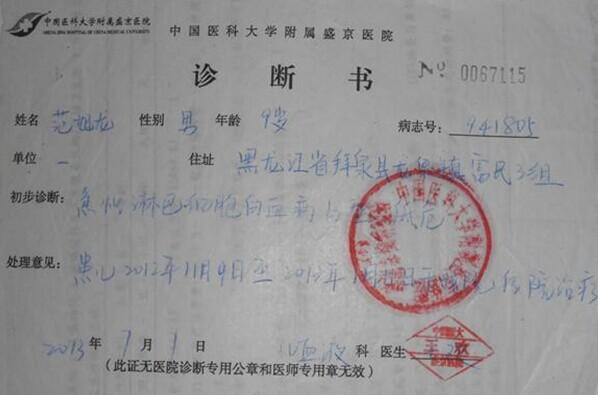 中国医科大学附属盛京医院
SHENG JING HOSPITAL OF CHINA MEDICAL UNIVERSITY
中国医科大学附属盛京医院
诊断书
No 0067115
姓名 范旭龙 性别 男 年龄 9岁 病志号: 941805
单位 一 住址 黑龙江省拜泉县龙泉镇富民3组
初步诊断: 急性淋巴细胞白血病 危
处理意见: 患儿2012年11月9日至2013年 住院治疗
2013年7月1日 血液科 医生
王欢
(此证无医院诊断专用公章和医师专用章无效)
中国医科大学附属